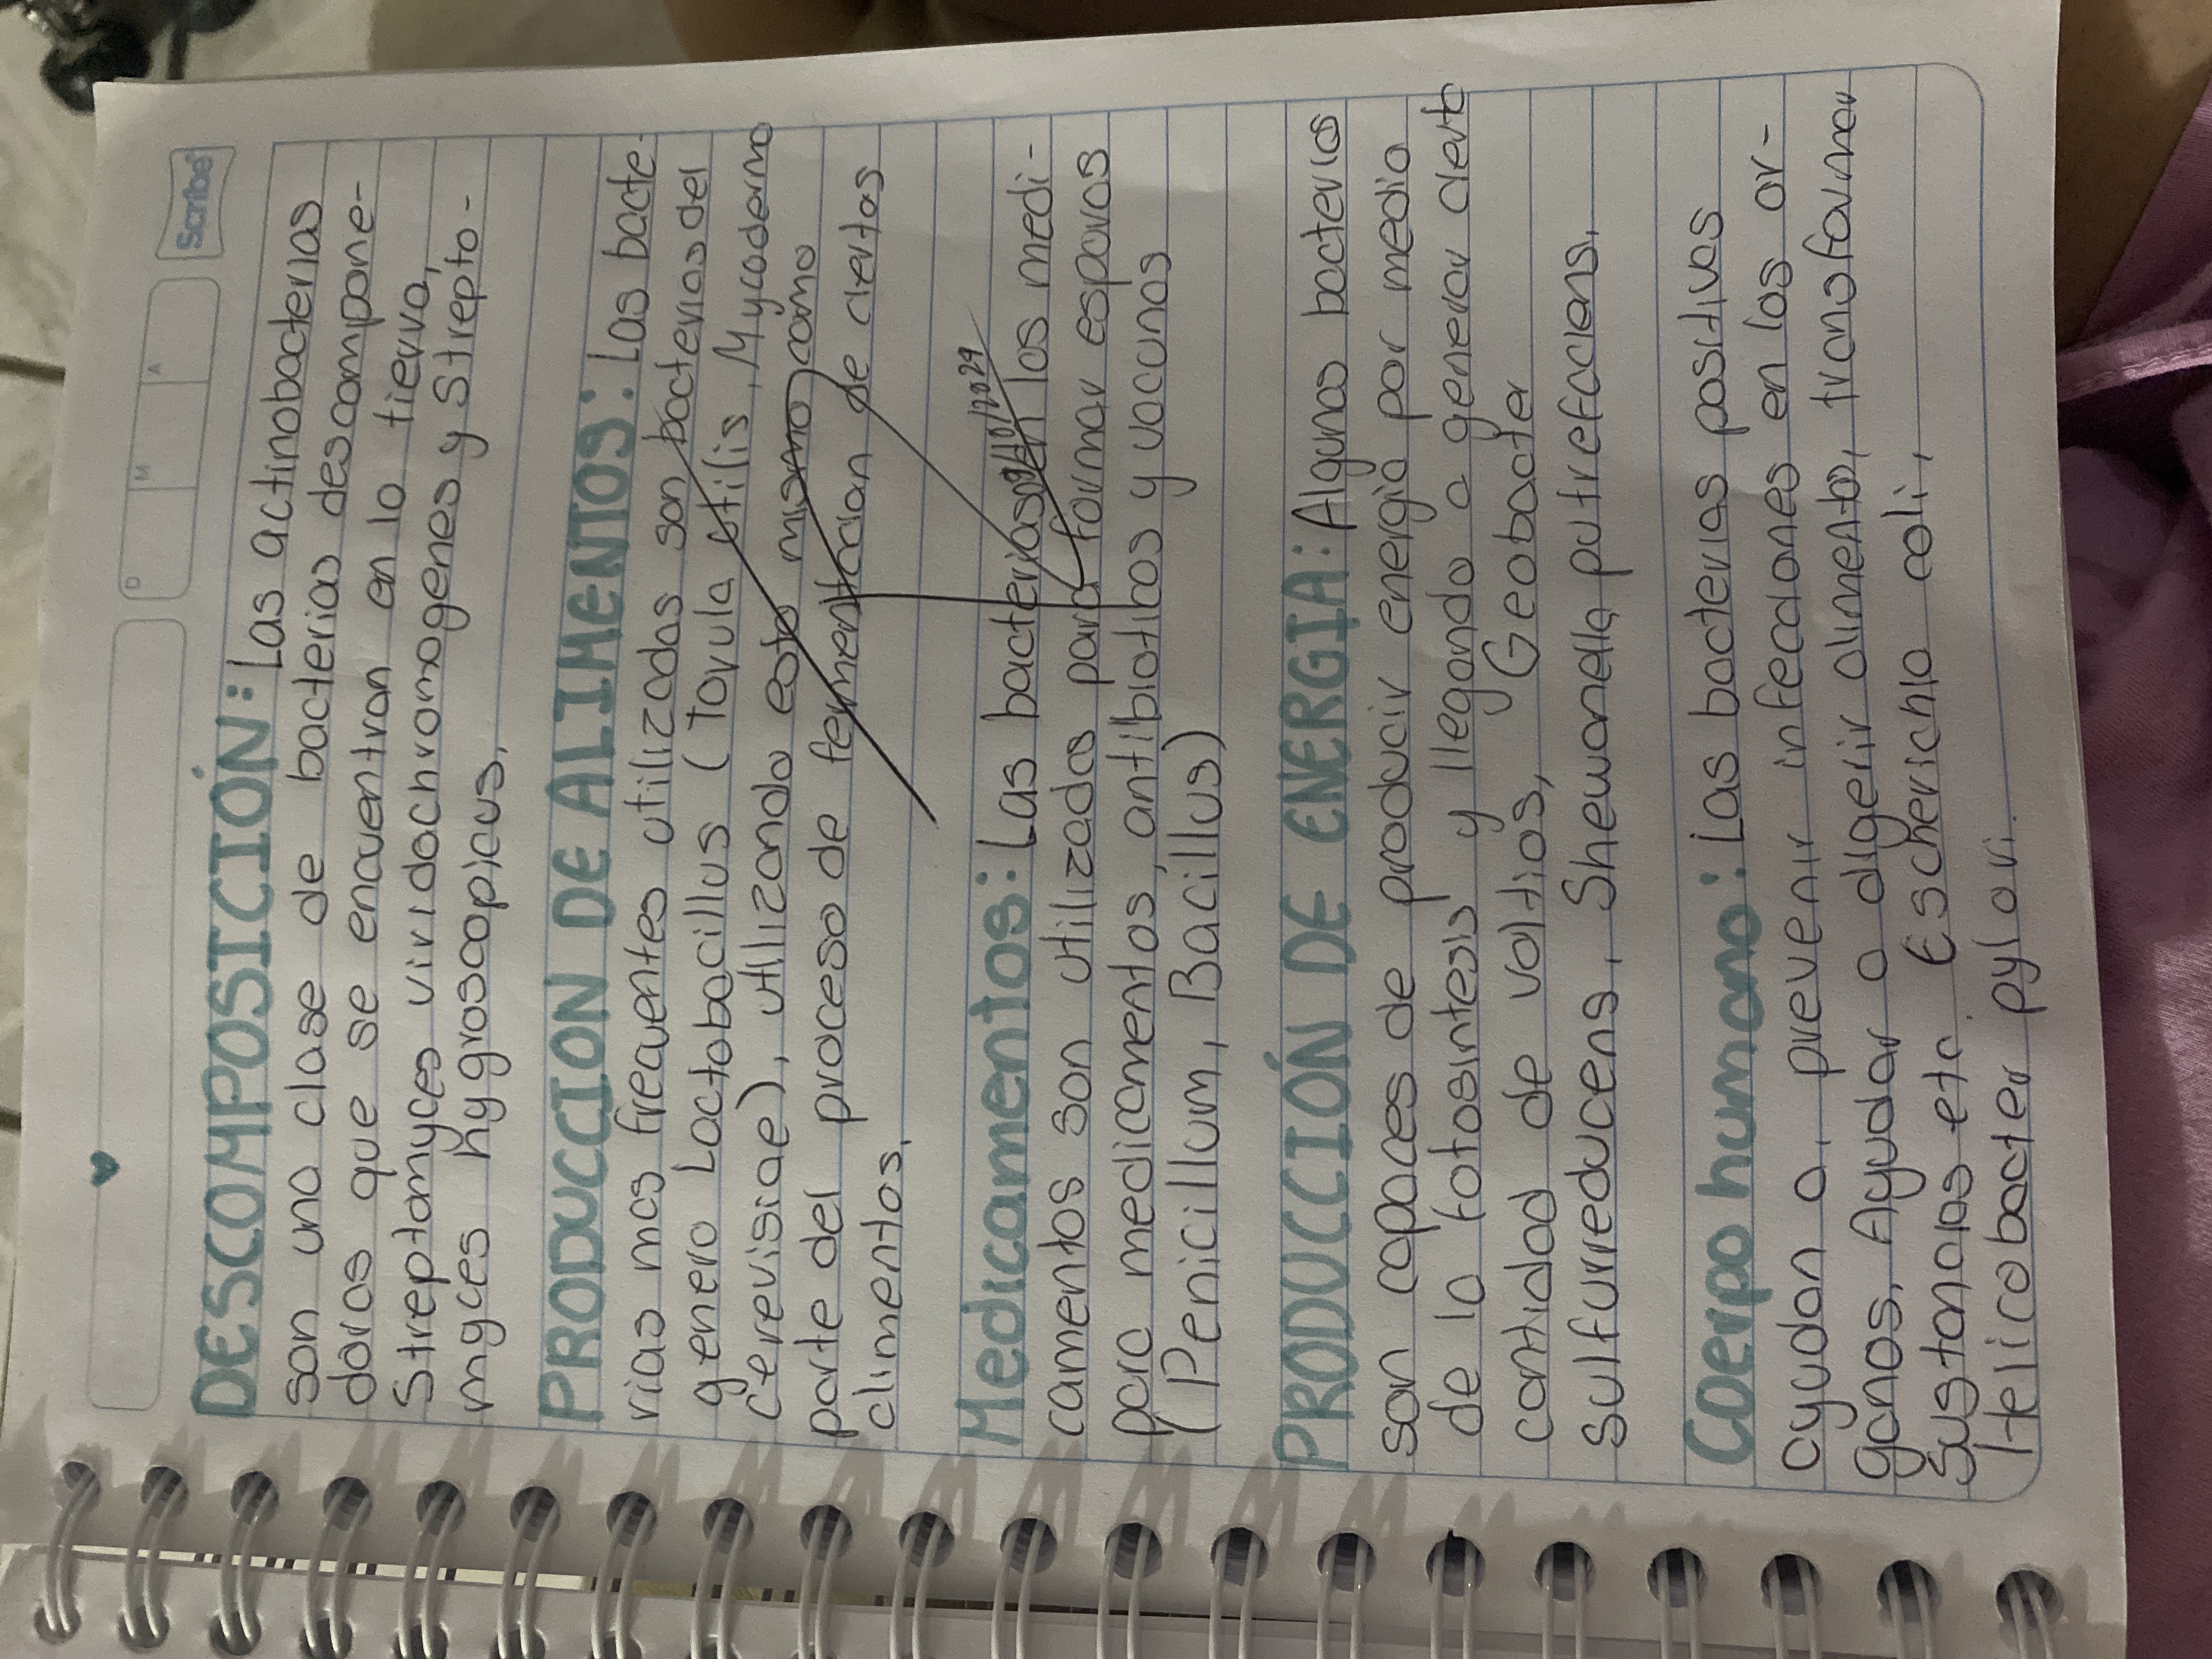 Scribe
D M A
DESCOMPOSICIÓN: Las actinobacterias
son una clase de bacterias descompone-
doras que se encuentran en la tierra,
Streptomyces viridochromogenes y Strepto-
myces hygroscopicus.
PRODUCCION DE ALIMENTOS: Las bacte-
rias mas frecuentes utilizadas son bacterias del
genero Lactobacillus (Torula utilis, Mycoderma
cerevisiae), utilizando esto mismo como
parte del proceso de fermentacion de ciertos
alimentos.
Medicamentos: Las bacterias en los medi-
camentos son utilizados para formar esporas
para medicamentos, antibioticos y vacunas
(Penicillum, Bacillus)
PRODUCCIÓN DE ENERGIA: Algunas bacterias
son capaces de producir energia por medio
de la fotosintesis y llegando a generar cierta
cantidad de voltios, Geobacter
sulfurreducens, Shewanella putrefaciens.
Coerpo humano: Las bacterias positivas
ayudan a, prevenir infecciones en los or-
ganos, Ayudar a digerir alimento, transformar
Sustancias etc. Escherichia coli,
Helicobacter pylori.